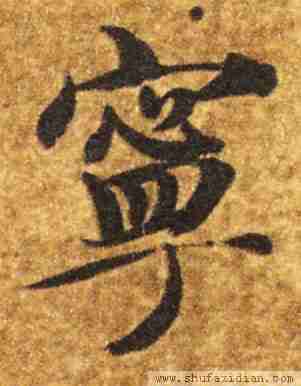 寧
www.shufazidian.com